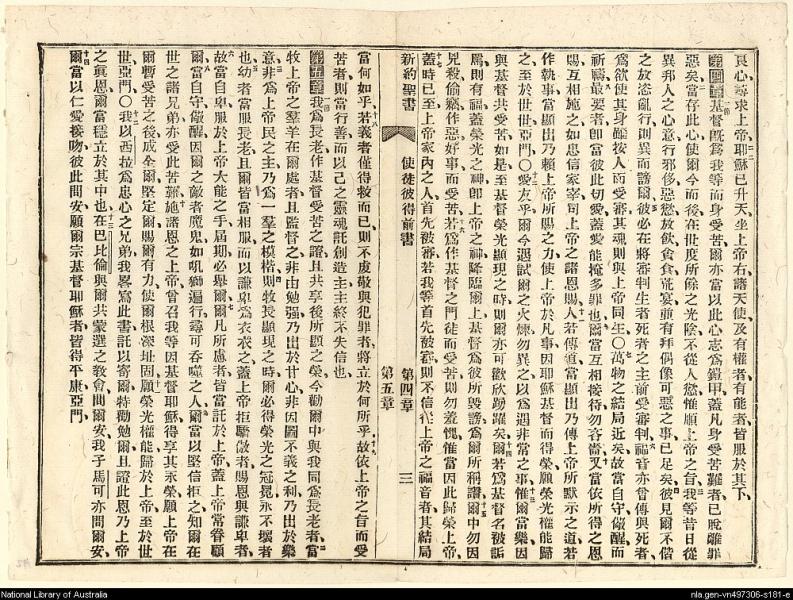 良心尋求上帝耶穌已升天坐上帝右諸天使及有權者有能者皆服於其下
第四章基督既爲我等而身受苦爾亦當以此心志爲鎧甲蓋凡身受苦難者已脫離罪
惡矣當存此心使爾今而後在世度所餘之光陰不從人慾惟順上帝之旨我等昔日從
異邦人之心意行邪侈惡慾放飲食貪荒宴並有拜偶像可惡之事已足矣彼見爾不偕
之放恣亂行則異而謗爾彼必在將審判生者死者之主前受審判福音亦曾傳與死者
爲欲使其身雖按人而受審其魂則與上帝同生〇萬物之結局近矣故當自守儆醒而
祈禱最要者即當彼此切愛蓋愛能掩多罪也爾當互相接待勿吝嗇又當依所得之恩
賜互相施之如忠信家宰司上帝之諸恩賜人若傳道當顯出乃傳上帝所默示之道若
作執事當顯出乃賴上帝所賜之力使上帝於凡事因耶穌基督而得榮願榮光權能歸
之至於世世亞門〇愛友乎爾今遇試爾之火煉勿異之以爲遇非常之事惟爾當樂因
與基督共受苦如是至基督榮光顯現之時則爾亦可歡欣踴躍矣爾若爲基督名被詬
厲則有福蓋榮光之神即上帝之神降臨爾上基督爲彼所毀謗爲爾所稱讚爾中勿因
兇殺偷竊作惡好事而受苦若爲作基督之門徒而受苦則勿羞愧惟當因此歸榮上帝
蓋時已至上帝家內之人首先被審若我等首先被審則不信從上帝之福音者其結局
新約聖書
使徒彼得前書
第四章
第五章
三
當何如乎若義者僅得救而已則不虔敬與犯罪者將立於何所乎故依上帝之旨而受
苦者則當行善而以己之靈魂託創造主主終不失信也
第五章我爲長老作基督受苦之證且共享後所顯之榮今勸爾中與我同爲長老者當
牧上帝之羣羊在爾處者且監督之非由勉強乃出於甘心非因圖不義之利乃出於樂
意非爲上帝民之主乃爲一羣之模楷則牧長顯現之時爾必得榮光之冠冕永不壞者
也幼者當服長老且爾皆當相服而以謙卑爲衣衣之蓋上帝拒驕傲者賜恩與謙卑者
故當自卑服於上帝大能之手屆期必舉爾爾凡所慮者皆當託於上帝蓋上帝常眷顧
爾當自守儆醒因爾之敵者魔鬼如吼獅遍行尋可吞噬之人爾當以堅信拒之知爾在
世之諸兄弟亦受此苦難施諸恩之上帝曾召我等因基督耶穌得享其永榮願上帝在
爾暫受苦之後成全爾堅定爾賜爾有力使爾根深址固願榮光權能歸於上帝至於世
世亞門〇我以西拉爲忠心之兄弟我畧寫此書託以寄爾特勸勉爾且證此恩乃上帝
之眞恩爾當穩立於其中也在巴比倫與爾共蒙選之教會問爾安我子馬可亦問爾安
爾當以仁愛接吻彼此問安願爾宗基督耶穌者皆得平康亞門
National Library of Australia
nla.gen-vn497306-s181-e